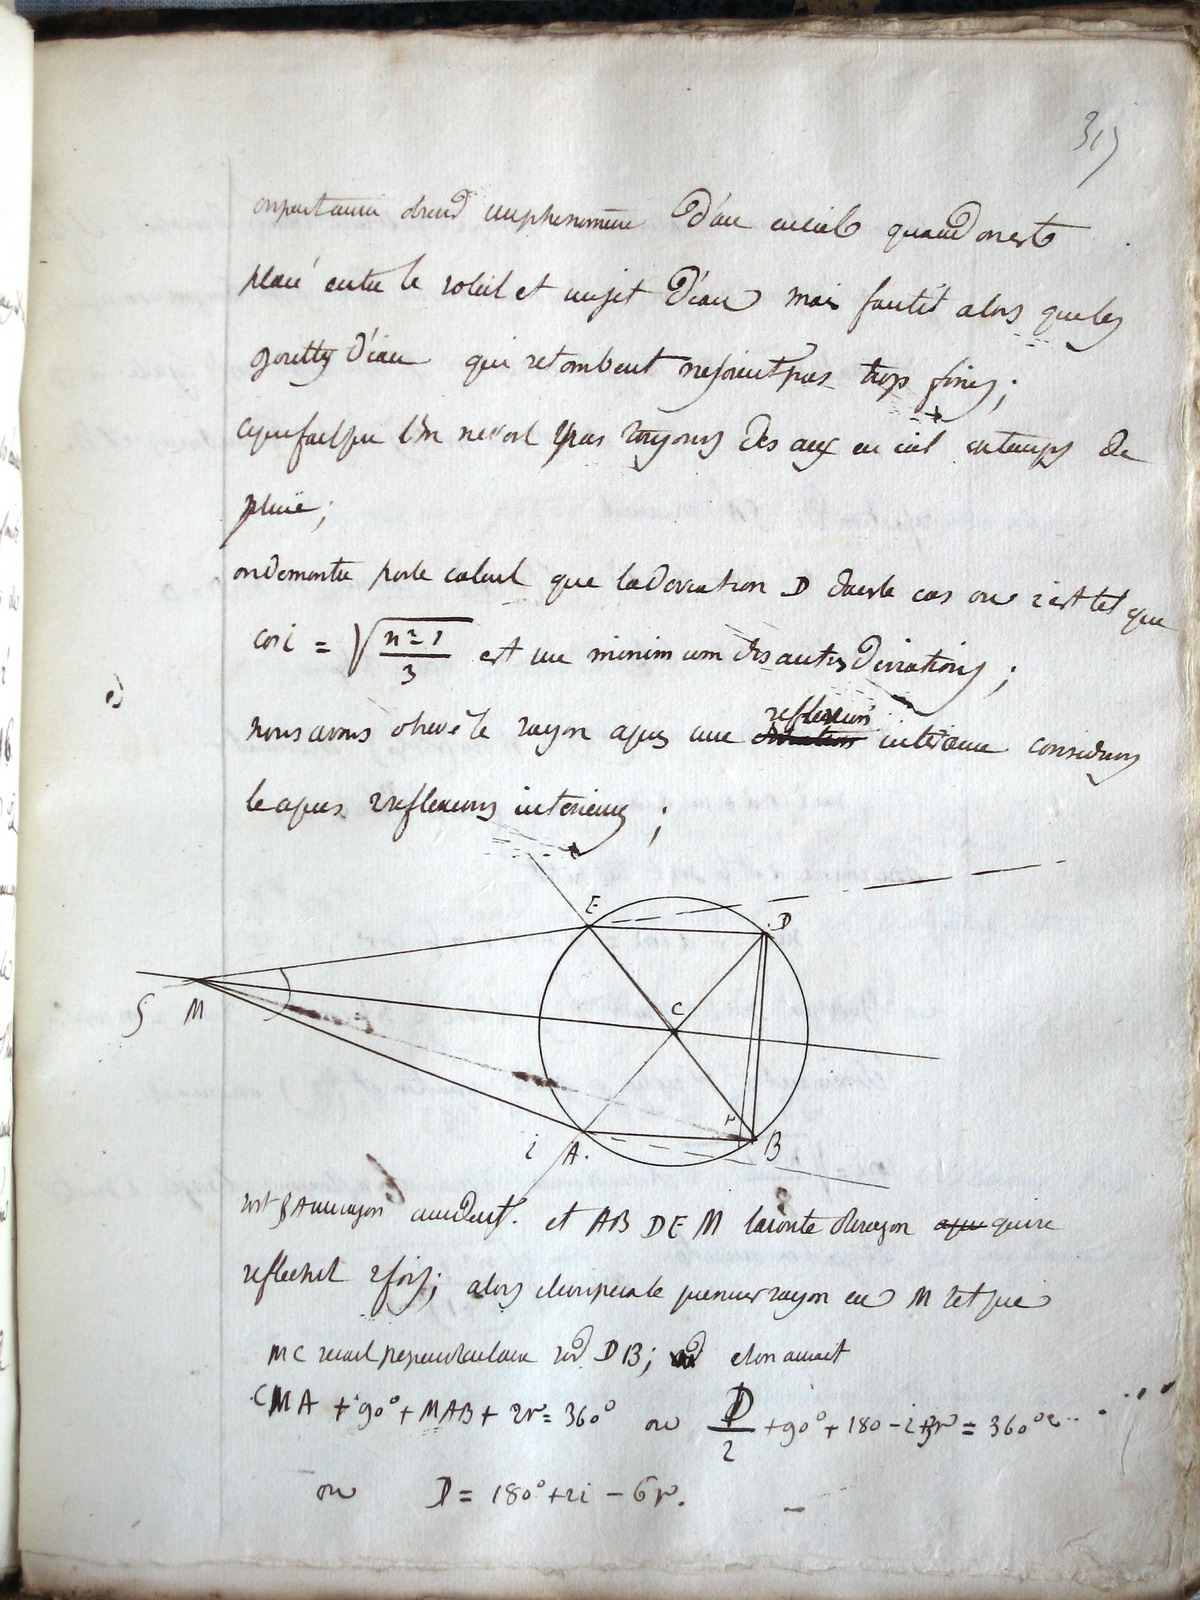 315
on peut aussi phenomene d'arc en ciel quand on est
placé entre le soleil et un jet d'eau mais faut il alors que les
gouttes d'eau qui retombent ne soient pas trop fines;
ce qui fait que l'on ne voit pas toujours des arcs en ciel en temps de
pluie;
on demontre par le calcul que la deviation D dans le cas ou i est tel que
cos i = √(n²-1 / 3) est un minimum des autres deviations;
nous avons observé le rayon apres une reflexion interieure considerons
le apres 2 reflexions interieures;
E
D
C
S M
r
i A.
B
soit SA un rayon incident. et AB DE M la route du rayon qui se
reflechit 2 fois; alors il coupera le premier rayon en M tel que
MC serait perpendiculaire sur DB; et l'on aurait
CMA + 90° + MAB + 2r = 360° ou D/2 + 90° + 180 - i + 3r = 360°
ou D = 180° + 2i - 6r.